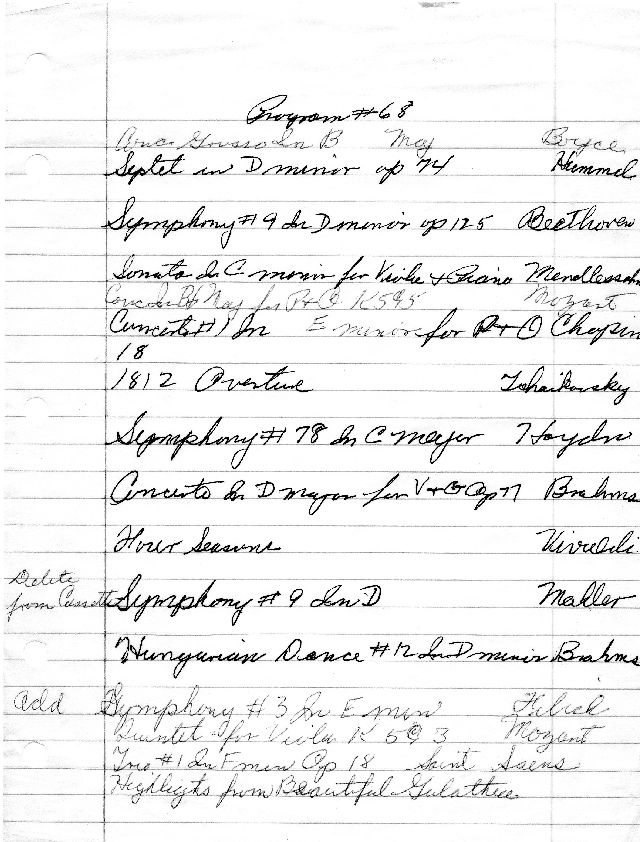 Program #68
Conc. Grosso In B Maj Boyce
Septet in D minor op 74 Hummel
Symphony #9 In D minor op 125 Beethoven
Sonata In C minor for Viola & Piano Mendelssohn
Conc In Bb Maj for P+O K595 Mozart
Concerto #1 In E minor for P+O Chopin
18
1812 Overture Tchaikovsky
Symphony # 78 In C major Haydn
Concerto In D major for V+O Op 77 Brahms
Four Seasons Vivaldi
Delete
from Cassette Symphony # 9 In D Mahler
Hungarian Dance #12 In D minor Brahms
Add Symphony #3 In E min Fibich
Quintet for Viola K 593 Mozart
Trio #1 In F min Op 18 Saint Saens
Highlights from Beautiful Galathea